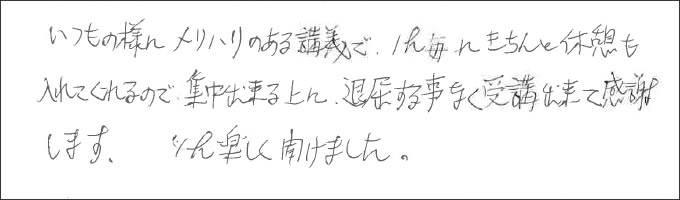 いつもの様に メリハリのある講義で、1h毎にきちんと休憩も
入れてくれるので、集中出来る上に、退屈する事なく受講出来て感謝
します、 楽しく聞けました。